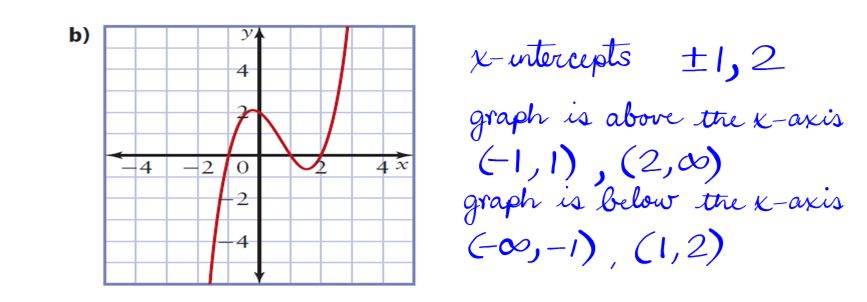 b)
y
4
2
-4 -2 0 2 4 x
-2
-4
x-intercepts ±1, 2
graph is above the x-axis
(-1, 1) , (2, ∞)
graph is below the x-axis
(-∞, -1) , (1, 2)